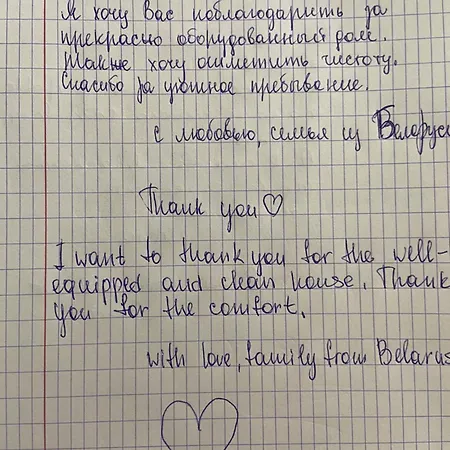 Я хочу Вас поблагодарить за
прекрасно оборудованный дом.
Также хочу отметить чистоту.
Спасибо за уютное пребывание.
с любовью, семья из Беларуси
Thank you♡
I want to thank you for the well-
equipped and clean house. Thank
you for the comfort.
with love, family from Belarus